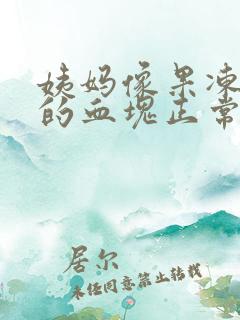 姨妈像果冻
的血块正常
居尔
未经同意禁止转载